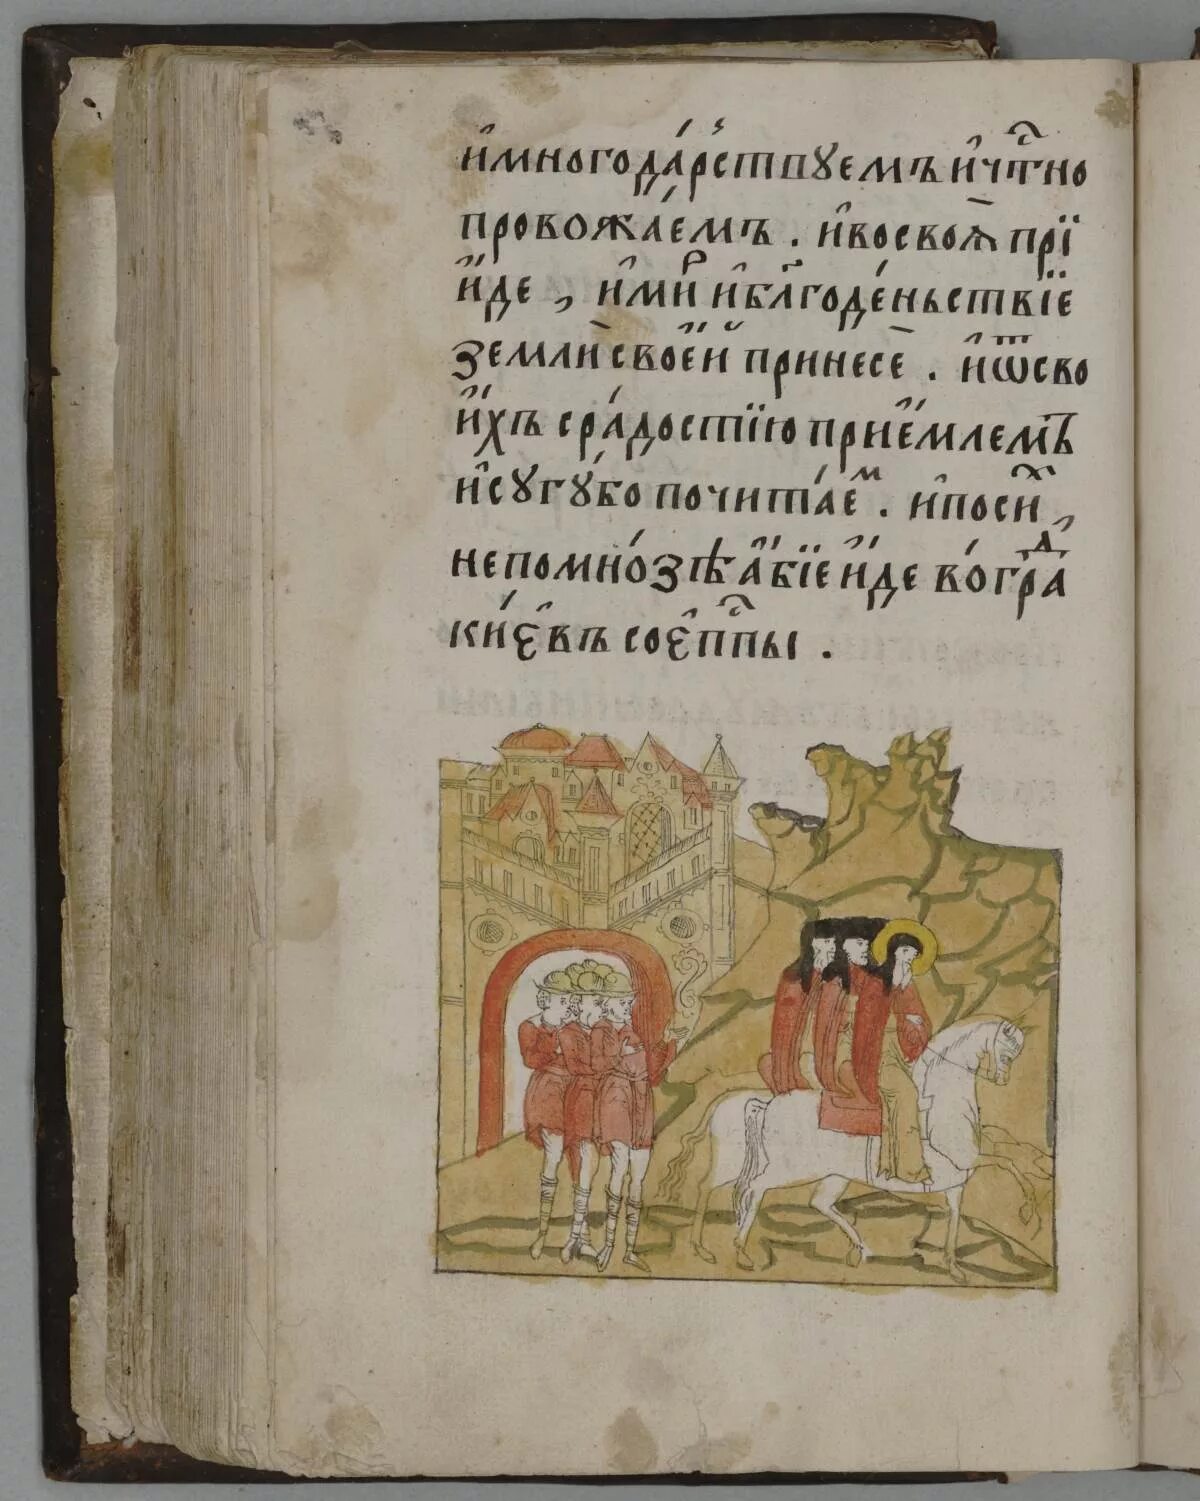 и҆многода́рствꙋемъ и҆чⷭ҇тно
провожа́емъ . и҆воскоѧ̀ прїи́
и҆́де , и҆ми́ръ и҆бл҃годе́ньствїе
землѝ свое́й принесѐ . и҆ѿсво
и҆́хъ сра́достїю прїе́млемъ
и҆сꙋгꙋ́бо почита́еⷨ . и҆посиⷯ
непомно́зѣ а҆́бїе и҆́де во́граⷣ
кі́евъ соепⷭ҇пы .